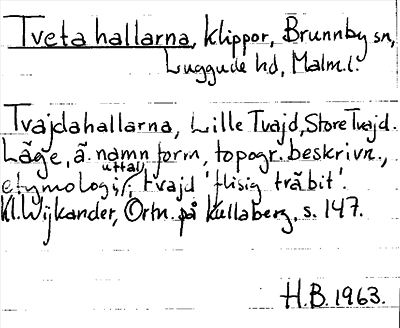 Tveta hallarna, klippor, Brunnby sn,
Luggude hd, Malm.l.
Tvajdahallarna, Lille Tvajd, Store Tvajd.
Läge, ä. namn form, topogr. beskrivn.,
uttal,
etymologi, tvajd 'flisig träbit'.
Kl. Wijkander, Ortn. på Kullaberg, s. 147.
H.B. 1963.